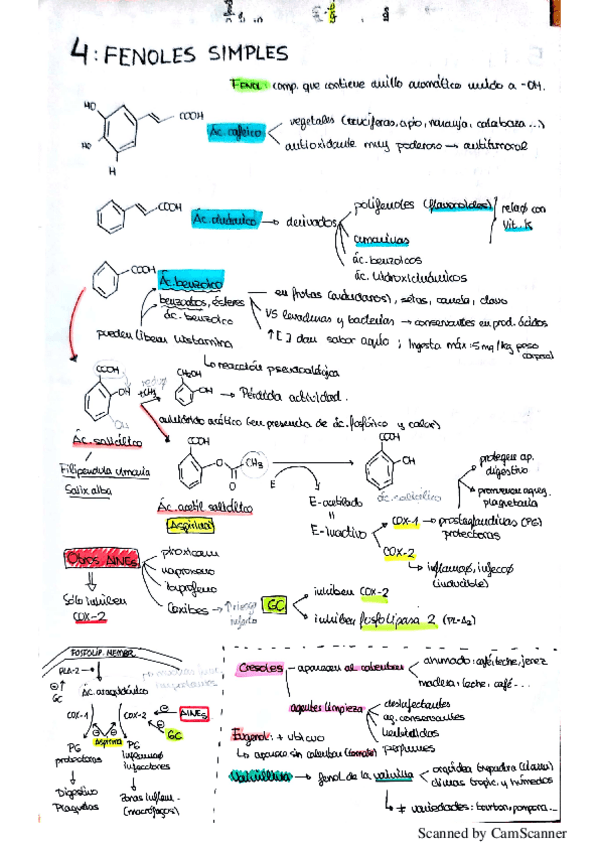 4: FENOLES SIMPLES
FENOL: comp. que contiene anillo aromático unido a -OH.
HO
HO
H
COOH
Ác. cafeico
vegetales (crucíferas, apio, naranja, calabaza...)
antioxidante muy poderoso → antitumoral
COOH
Ác. cinámico → derivados
polifenoles (flavonoides)
cumarinas
relac⊕ con
Vit. K
ác. benzoicos
ác. hidroxicinámicos
COOH
Ác. benzoico
benzoatos, ésteres
ác. benzoico
pueden liberar histamina
↳ reacción pseudoalérgica
en frutas (arándanos), setas, canela, clavo
VS levaduras y bacterias → conservantes en prod. ácidos
↑[ ] dan sabor agrio ; Ingesta máx: 5 mg/kg peso
corporal
COOH
OH
OH
Ác. salicílico
Filipendula ulmaria
Salix alba
CH₂OH
OH → Pérdida actividad.
anhídrido acético (en presencia de ác. fosfórico y calor)
COOH
O
O
CH₃
Ác. acetil salicílico
Aspirina
E
E-acetilado
=
E-inactivo
COOH
OH
ác. salicílico
COX-1 → prostaglandinas (PG)
protectoras
proteger ap.
digestivo
promueven agreg.
plaquetaria
COX-2
↳ inflamac⊕, infecc⊕
(inducible)
Otros AINEs
Sólo inhiben
COX-2
piroxicam
naproxeno
ibuprofeno
Coxibes → ↑riesgo
infarto
GC
inhiben COX-2
inhiben fosfolipasa 2 (PL-A₂)
FOSFOLIP. MEMBR.
PLA-2
⊖↑
GC
Ác. araquidónico
COX-1
COX-2
⊖
AINEs
⊖
Aspirina
⊖
⊖
GC
PG
protectoras
PG
inflamac⊕
infectores
Digestivo
Plaquetas
Zonas inflam.
(macrófagos)
Cresoles
aparecen al calentar
ahumado: café, leche, jerez
madera: leche, café...
agentes limpieza
desinfectantes
ag. conservantes
herbicidas
perfumes
Eugenol: + ubicuo
↳ aparece sin calentar (tomate)
Vainillina → fenol de la vainilla
orquídea trepadora (liana)
climas tropic. y húmedos
↳ ≠ variedades: bourbon, pompona...
Scanned by CamScanner